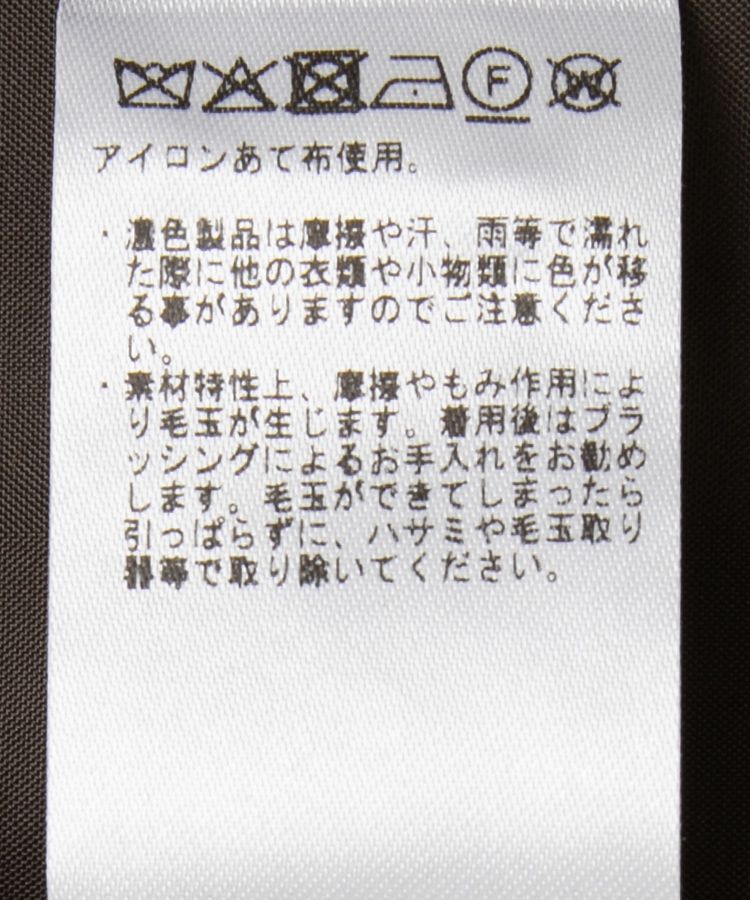 F W
アイロンあて布使用。
・濃色製品は摩擦や汗、雨等で濡れ
た際に他の衣類や小物類に色が移
る事がありますのでご注意くださ
い。
・素材特性上、摩擦やもみ作用によ
り毛玉が生じます。着用後はブラ
ッシングによるお手入れをお勧め
します。毛玉ができてしまったら
引っぱらずに、ハサミや毛玉取り
器等で取り除いてください。